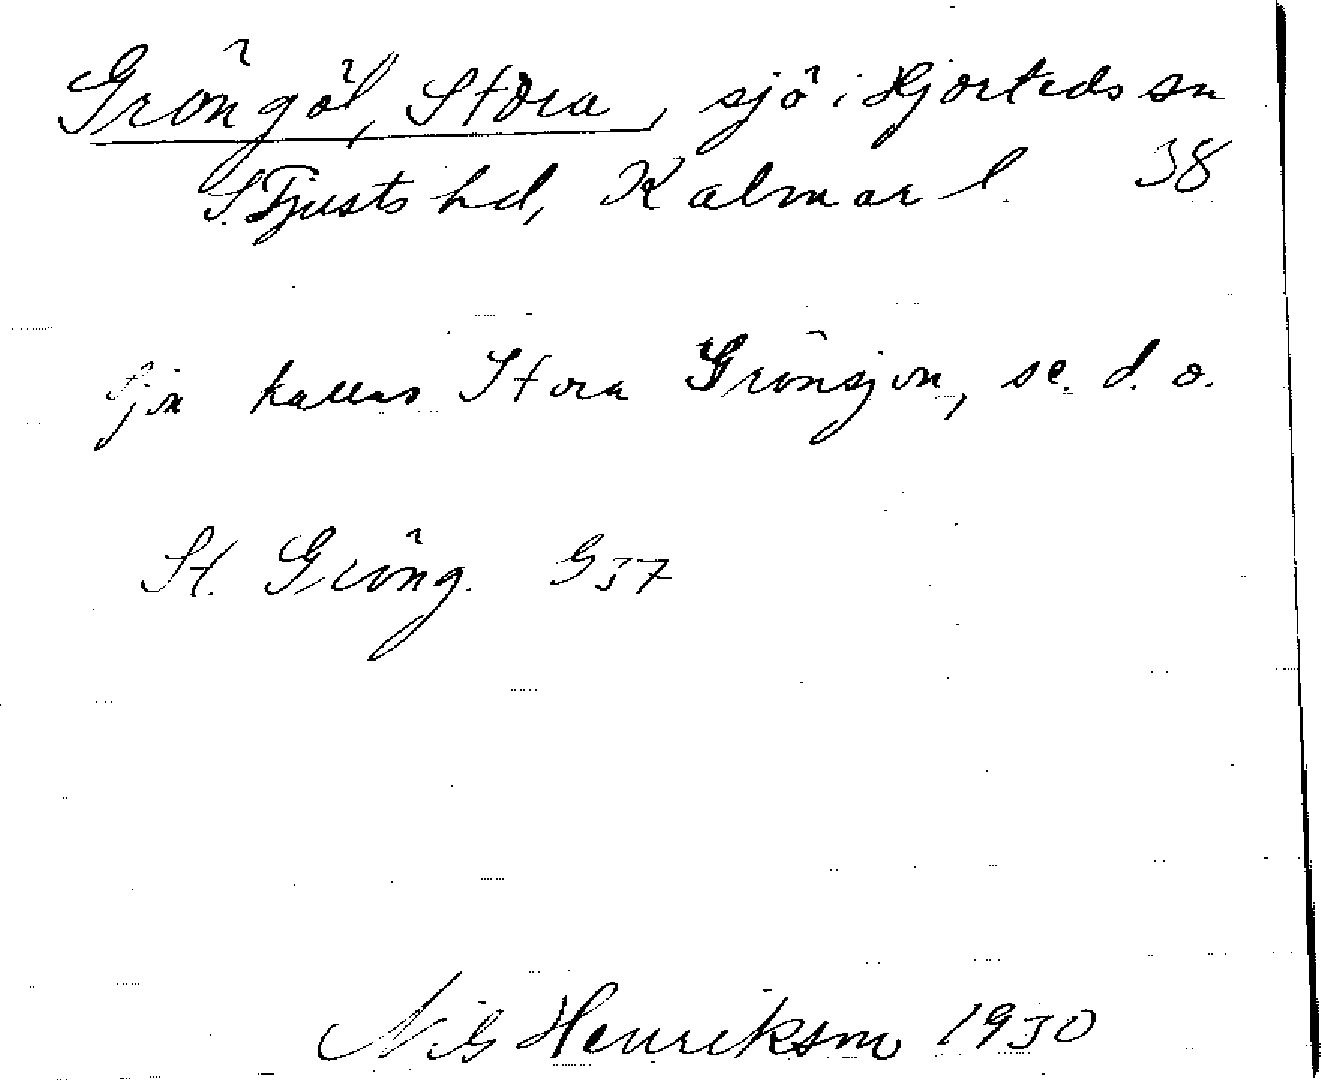 Gröngöl, Stora, sjö i Hjorteds sn
S. Tjusts hd, Kalmar l. 38
Sjön kallas Stora Grönsjön, se. d. o.
St. Gröng. G37
Nils Henrikson 1930